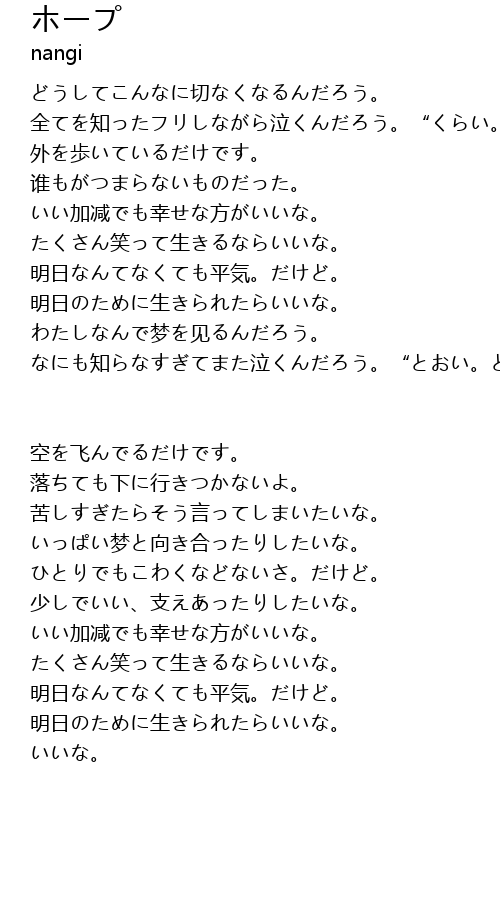 ホープ
nangi
どうしてこんなに切なくなるんだろう。
全てを知ったフリしながら泣くんだろう。 “くらい。
外を歩いているだけです。
誰もがつまらないものだった。
いい加减でも幸せな方がいいな。
たくさん笑って生きるならいいな。
明日なんてなくても平気。だけど。
明日のために生きられたらいいな。
わたしなんで梦を见るんだろう。
なにも知らなすぎてまた泣くんだろう。 “とおい。と
空を飞んでるだけです。
落ちても下に行きつかないよ。
苦しすぎたらそう言ってしまいたいな。
いっぱい梦と向き合ったりしたいな。
ひとりでもこわくなどないさ。だけど。
少しでいい、支えあったりしたいな。
いい加减でも幸せな方がいいな。
たくさん笑って生きるならいいな。
明日なんてなくても平気。だけど。
明日のために生きられたらいいな。
いいな。